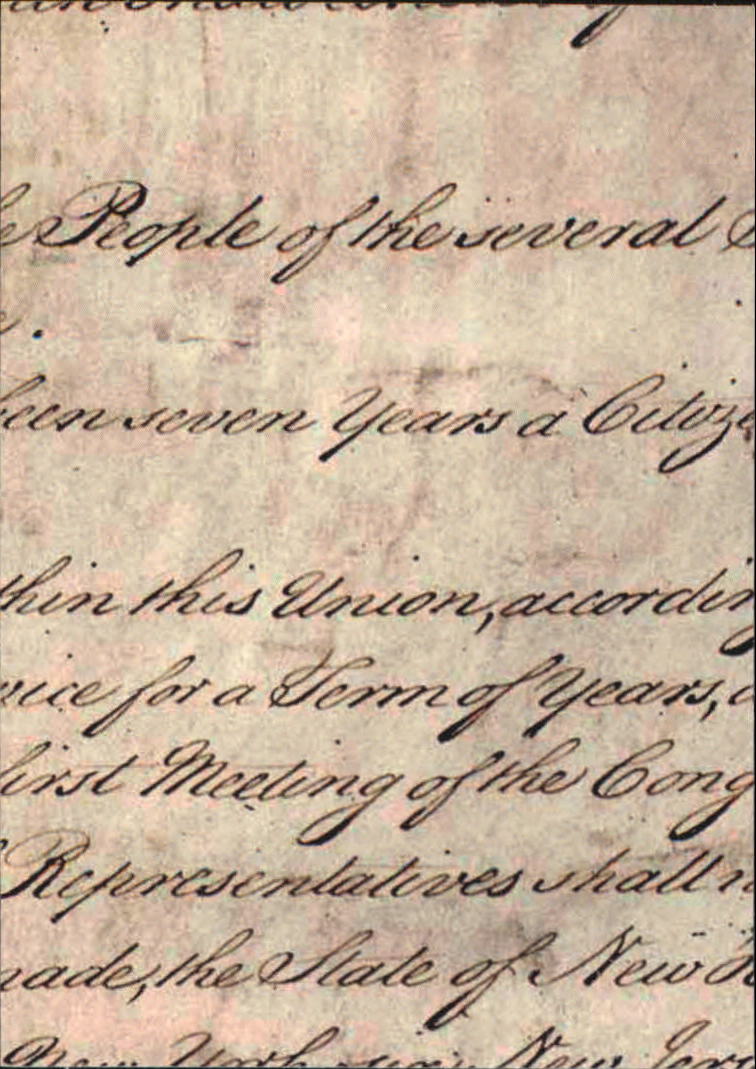 People of the several
een seven Years a Citize
thin this Union, according
vice for a Term of Years, a
first Meeting of the Cong
Representatives shall n
made, the State of New H
New York six, New Jers